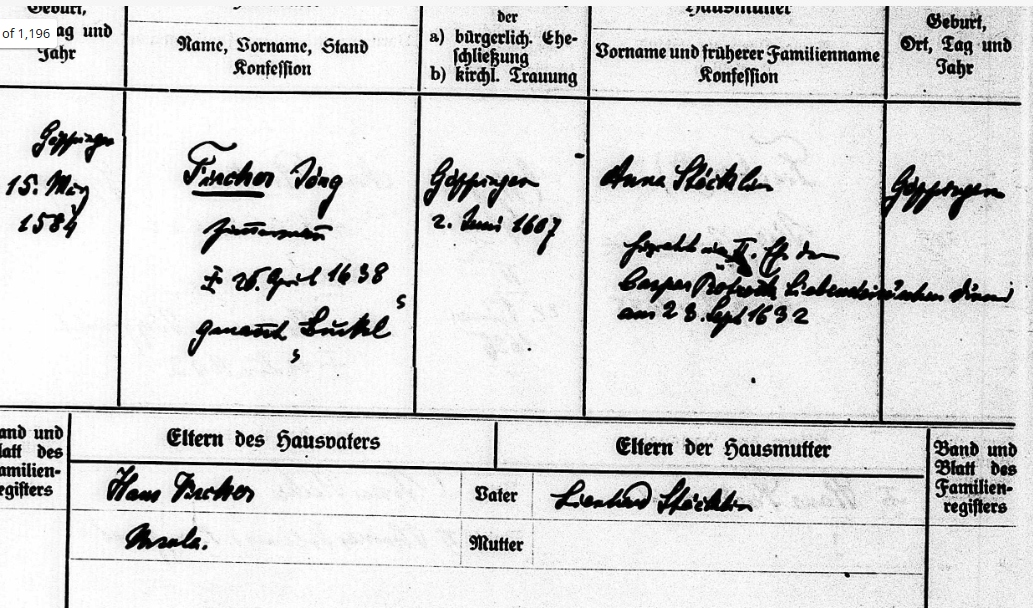 of 1,196
Geburt,
Tag und
Jahr
Name, Vorname, Stand
Konfession
der
a) bürgerlich. Ehe-
schließung
b) kirchl. Trauung
Hausmutter
Vorname und früherer Familienname
Konfession
Geburt,
Ort, Tag und
Jahr
Göppingen
15. März
1584
Fircher Jörg
Zimmermann
26. April 1638
genannt
Göppingen
2. Juni 1607
Anna Stöcklin
II. Ehe
Caspar
am 23. Sept 1632
Göppingen
Band und
Blatt des
Familien-
registers
Eltern des Hausvaters
Eltern der Hausmutter
Band und
Blatt des
Familien-
registers
Hans Fircher
Vater
Lienhard Stöcklin
Ursula.
Mutter